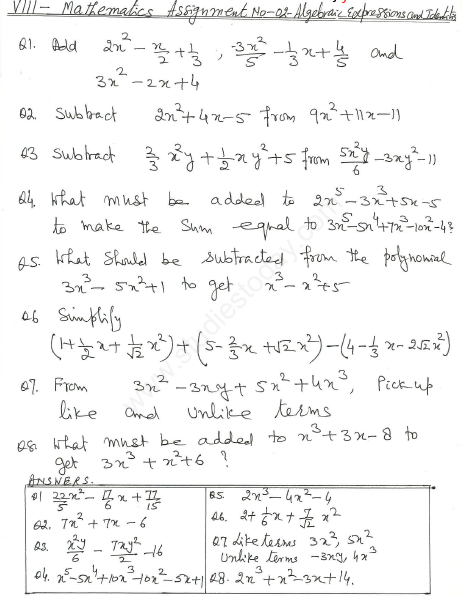 VIII - Mathematics Assignment No-02-Algebraic Expressions and Identities
Q1. Add 2x² - x/2 + 1/3 , -3x²/5 - 1/3 x + 4/5 and
3x² - 2x + 4
Q2. Subtract 2x² + 4x - 5 from 9x² + 11x - 11
Q3 Subtract 2/3 x²y + 1/2 xy² + 5 from 5x²y/6 - 3xy² - 11
Q4. What must be added to 2x⁵ - 3x³ + 5x - 5
to make the sum equal to 3x⁵ - 5x⁴ + 7x³ - 10x² - 4?
Q5. What should be subtracted from the polynomial
3x³ - 5x² + 1 to get x³ - x² + 5
Q6 Simplify
(1 + 1/2 x + 1/√2 x²) + (5 - 2/3 x + √2 x²) - (4 - 1/3 x - 2√2 x²)
Q7. From 3x² - 3xy + 5x² + 4x³, Pick up
like and unlike terms
Q8. What must be added to x³ + 3x - 8 to
get 3x³ + x² + 6 ?
ANSWERS.
Q1 22/5 x² - 17/6 x + 77/15
Q2. 7x² + 7x - 6
Q3. x²y/6 - 7xy²/2 - 16
Q4. x⁵ - 5x⁴ + 10x³ - 10x² - 5x + 1
Q5. 2x³ - 4x² - 4
Q6. 2 + 1/6 x + 7/√2 x²
Q7 Like terms 3x², 5x²
Unlike terms -3xy, 4x³
Q8. 2x³ + x² - 3x + 14.
www.studiestoday.com